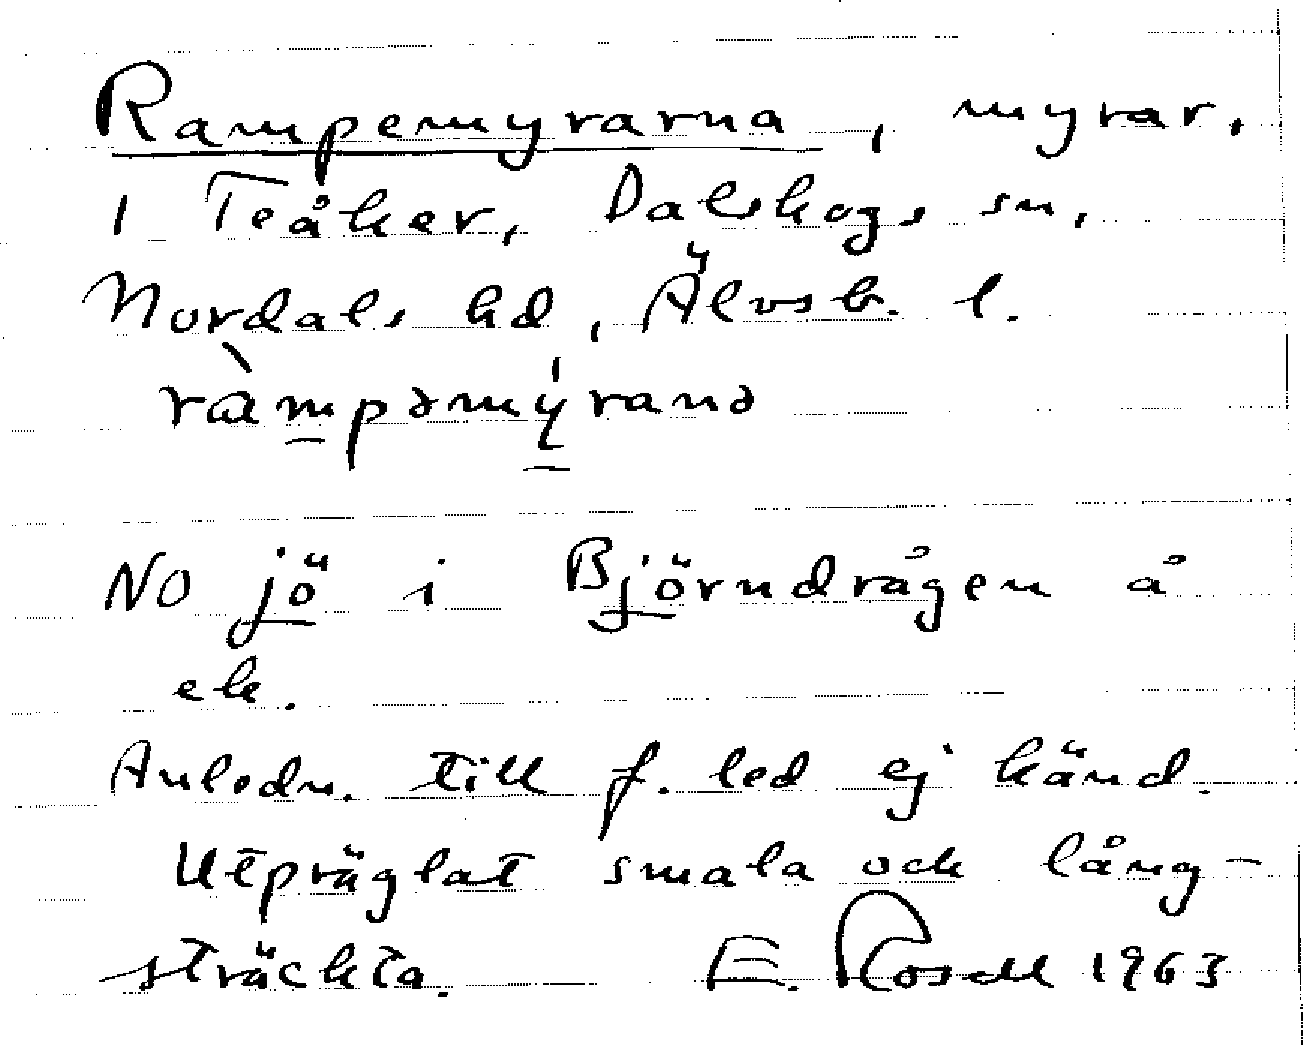 Rampemyrarna, myrar,
i Teåker, Dalskogs sn,
Nordals hd, Älvsb. l.
ràmpəmýranə
NO jö i Björndrågen å
ek.
Anledn. till f. led ej känd.
Utpräglat smala och lång-
sträckta. E. Rosell 1963